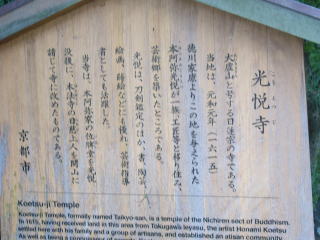 光悦寺
大虚山と号する日蓮宗の寺である。
当地は、元和元年(一六一五)
徳川家康よりこの地を与えられた
本阿弥光悦が一族、工匠等と移り住み、
芸術郷を築いたところである。
光悦は、刀剣鑑定のほか、書、陶芸、
絵画、蒔絵などにも優れ、芸術指導
者としても活躍した。
当寺は、本阿弥家の位牌堂を光悦
没後に、本法寺の日慈上人を開山に
請じて寺に改めたものである。
京都市
Koetsu-ji Temple
Koetsu-ji Temple, formally named Taikyo-san, is a temple of the Nichiren sect of Buddhism.
In 1615, having received land in this area from Tokugawa Ieyasu, the artist Honami Koetsu
settled here with his family and a group of artisans, and established an artisan community.